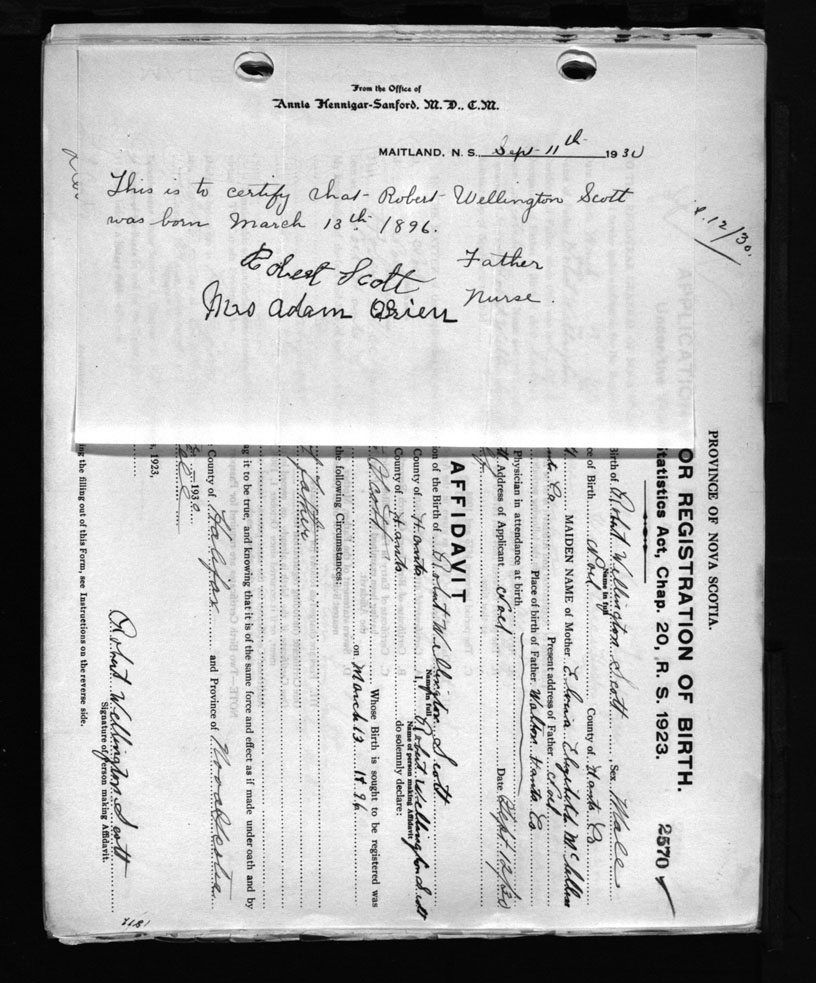 From the Office of
Annie Hennigar-Sanford, M. D., C. M.
MAITLAND, N. S., Sept 11th 1930
This is to certify that Robert Wellington Scott
was born March 13th 1896.
Robert Scott Father
Mrs Adam Brien Nurse.
12/30.
PROVINCE OF NOVA SCOTIA.
OR REGISTRATION OF BIRTH.
tatistics Act, Chap. 20, R. S. 1923.
2570
Birth of Robert Wellington Scott, Sex Male
Name in full
ce of Birth Noel County of Hants Co
MAIDEN NAME of Mother Elizabeth
Present address of Father Noel
Co Place of birth of Father Walton Hants Co
Physician in attendance at birth
Address of Applicant Noel Date Sept. 12/30
AFFIDAVIT
ion of the Birth of Robert Wellington Scott
Name in full
County of Hants I, Robert Wellington Scott
Name of person making Affidavit
County of Hants do solemnly declare:
Scott Whose Birth is sought to be registered was
on March 13 1896
the following Circumstances:
father
g it to be true, and knowing that it is of the same force and effect as if made under oath and by
County of Halifax and Province of Nova Scotia
1930
, 1923,
Robert Wellington Scott
Signature of person making Affidavit.
ng the filling out of this Form, see Instructions on the reverse side.